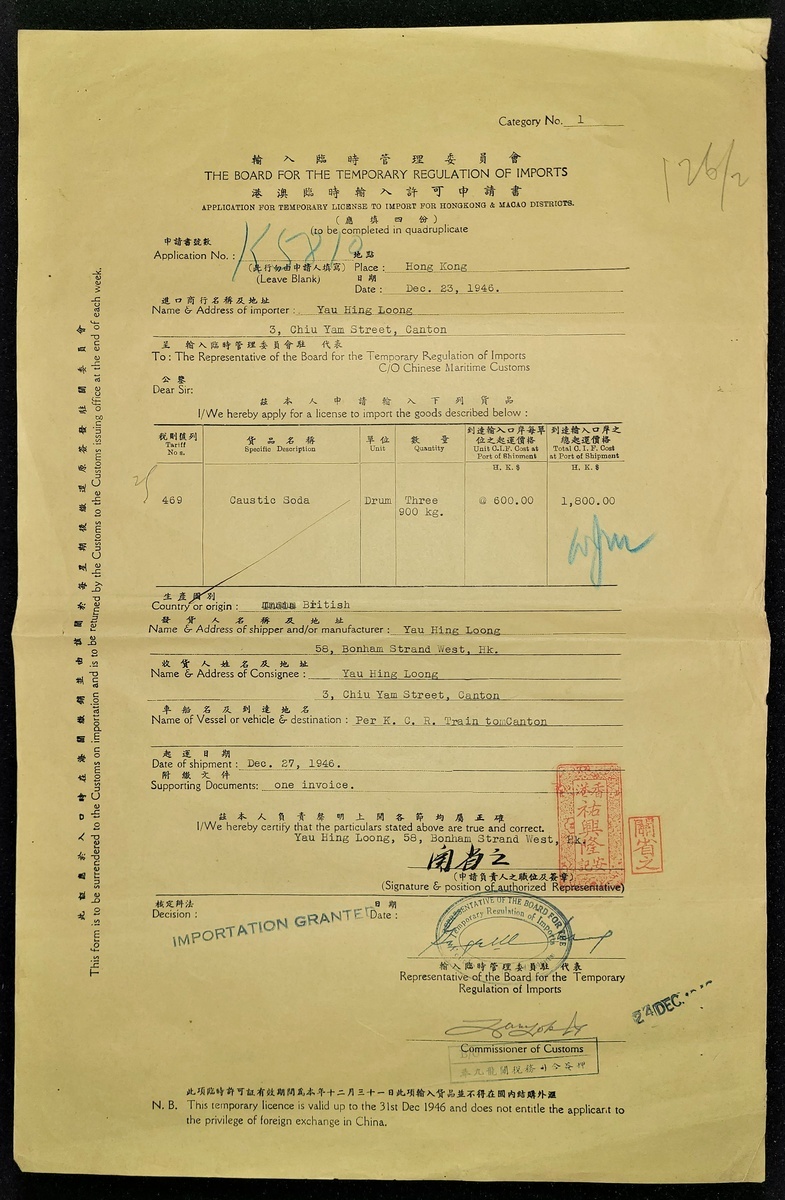 Category No. 1
126/2
輸入臨時管理委員會
THE BOARD FOR THE TEMPORARY REGULATION OF IMPORTS
港澳臨時輸入許可申請書
APPLICATION FOR TEMPORARY LICENSE TO IMPORT FOR HONGKONG & MACAO DISTRICTS.
(應填四份)
(to be completed in quadruplicate
申請書號數
Application No. : K5810
(此行勿由申請人填寫)
(Leave Blank)
地點
Place : Hong Kong
日期
Date : Dec. 23, 1946.
進口商行名稱及地址
Name & Address of importer : Yau Hing Loong
3, Chiu Yam Street, Canton
呈 輸入臨時管理委員會駐 代表
To : The Representative of the Board for the Temporary Regulation of Imports
C/O Chinese Maritime Customs
公鑒
Dear Sir:
茲本人申請輸入下列貨品
I/We hereby apply for a license to import the goods described below :
稅則號列 貨品名稱 單位 數量 到達輸入口岸每單位之起運價格 到達輸入口岸之總起運價格
Tariff No s. Specific Description Unit Quantity Unit C.I.F. Cost at Port of Shipment Total C. I. F. Cost at Port of Shipment
H. K. $ H. K. $
469 Caustic Soda Drum Three @ 600.00 1,800.00
900 kg.
生產國別
Country or origin : British
發貨人名稱及地址
Name & Address of shipper and/or manufacturer : Yau Hing Loong
58, Bonham Strand West, Hk.
收貨人姓名及地址
Name & Address of Consignee : Yau Hing Loong
3, Chiu Yam Street, Canton
車船名及到達地名
Name of Vessel or vehicle & destination : Per K. C. R. Train tomCanton
起運日期
Date of shipment : Dec. 27, 1946.
附繳文件
Supporting Documents: one invoice.
茲本人負責聲明上開各節均屬正確
I/We hereby certify that the particulars stated above are true and correct.
Yau Hing Loong, 58, Bonham Strand West, Hk.
香港
祐興隆
安記
關省之
關省之
(申請負責人之職位及簽章)
(Signature & position of authorized Representative)
核定辦法
Decision :
IMPORTATION GRANTED
日期
Date :
REPRESENTATIVE OF THE BOARD FOR THE
Temporary Regulation of Imports
輸入臨時管理委員駐 代表
Representative of the Board for the Temporary
Regulation of Imports
24 DEC.
Commissioner of Customs
此項臨時許可証有效期間為本年十二月三十一日此項輸入貨品並不得在國內結購外滙
N. B. This temporary licence is valid up to the 31st Dec 1946 and does not entitle the applicant to
the privilege of foreign exchange in China.
此証應於入口時在海關繳銷並由該關於每星期後繳還原簽發駐關委員會
This form is to be surrendered to the Customs on importation and is to be returned by the Customs to the Customs issuing office at the end of each week.